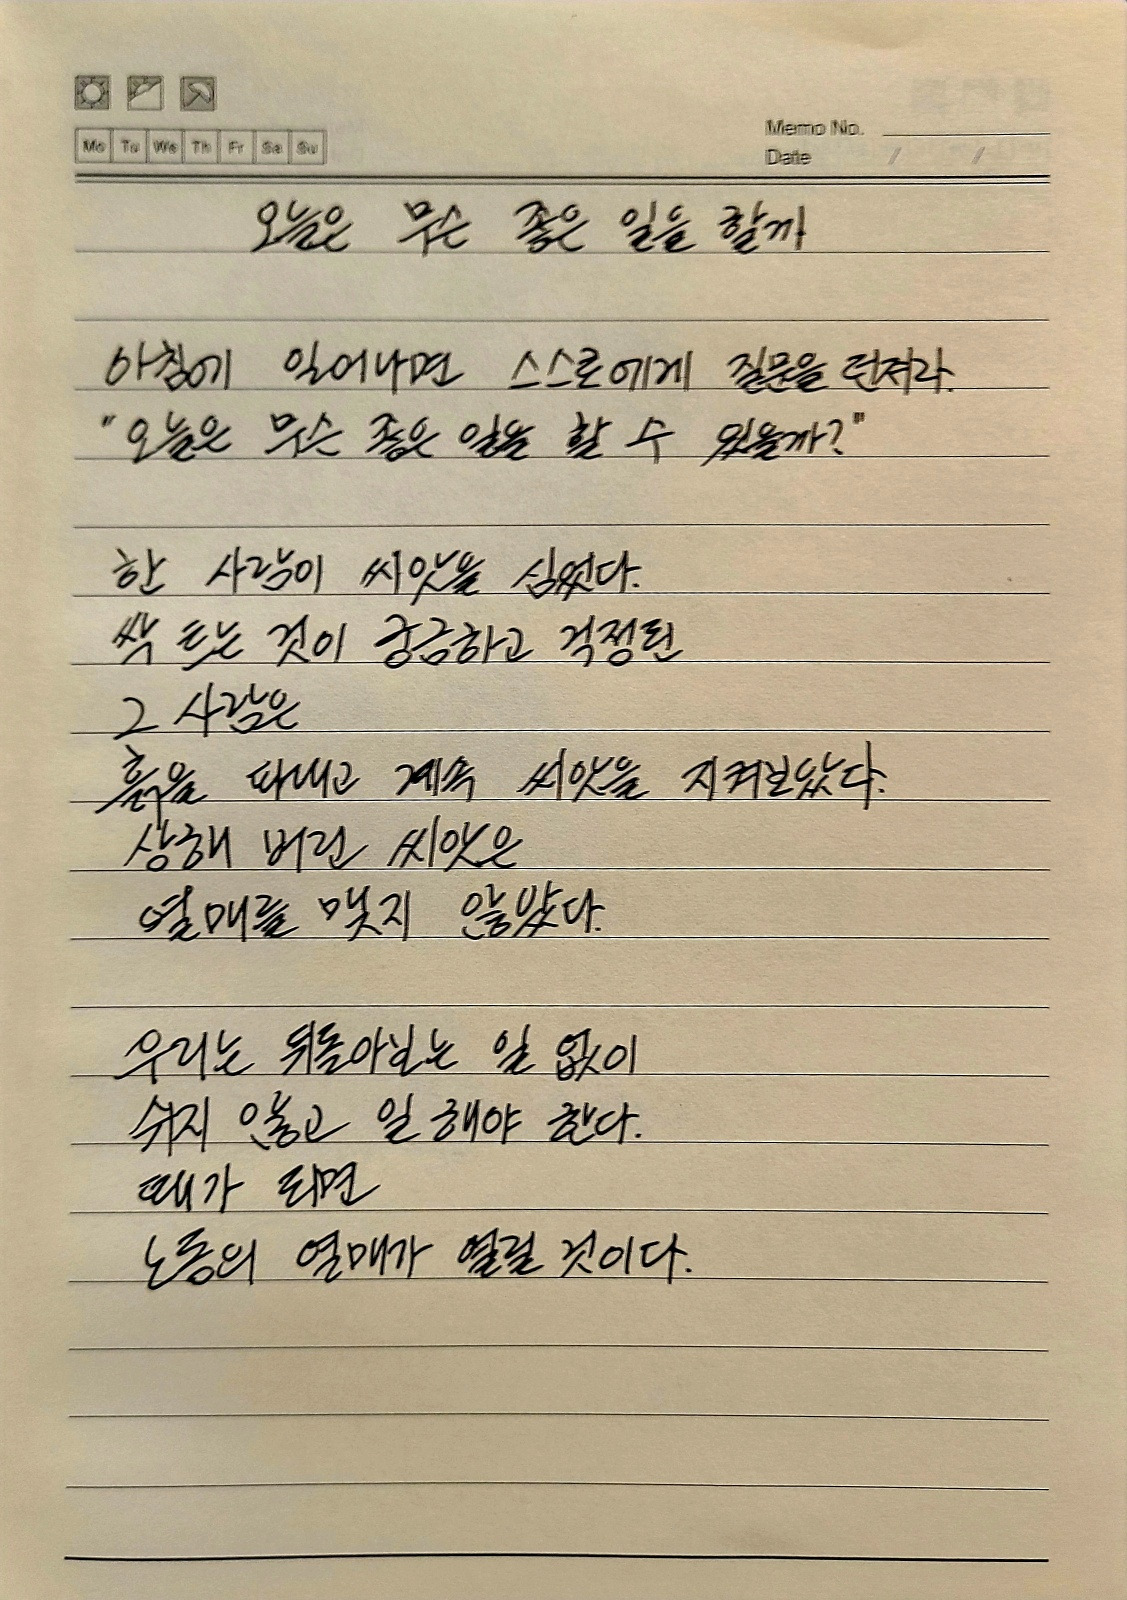 Mo Tu We Th Fr Sa Su
Memo No.
Date / /
오늘은 무슨 좋은 일을 할까
아침에 일어나면 스스로에게 질문을 던져라.
"오늘은 무슨 좋은 일을 할 수 있을까?"
한 사람이 씨앗을 심었다.
싹 트는 것이 궁금하고 걱정된
그 사람은
흙을 파내고 계속 씨앗을 지켜보았다.
상해 버린 씨앗은
열매를 맺지 않았다.
우리는 뒤돌아보는 일 없이
쉬지 않고 일 해야 한다.
때가 되면
노동의 열매가 열릴 것이다.